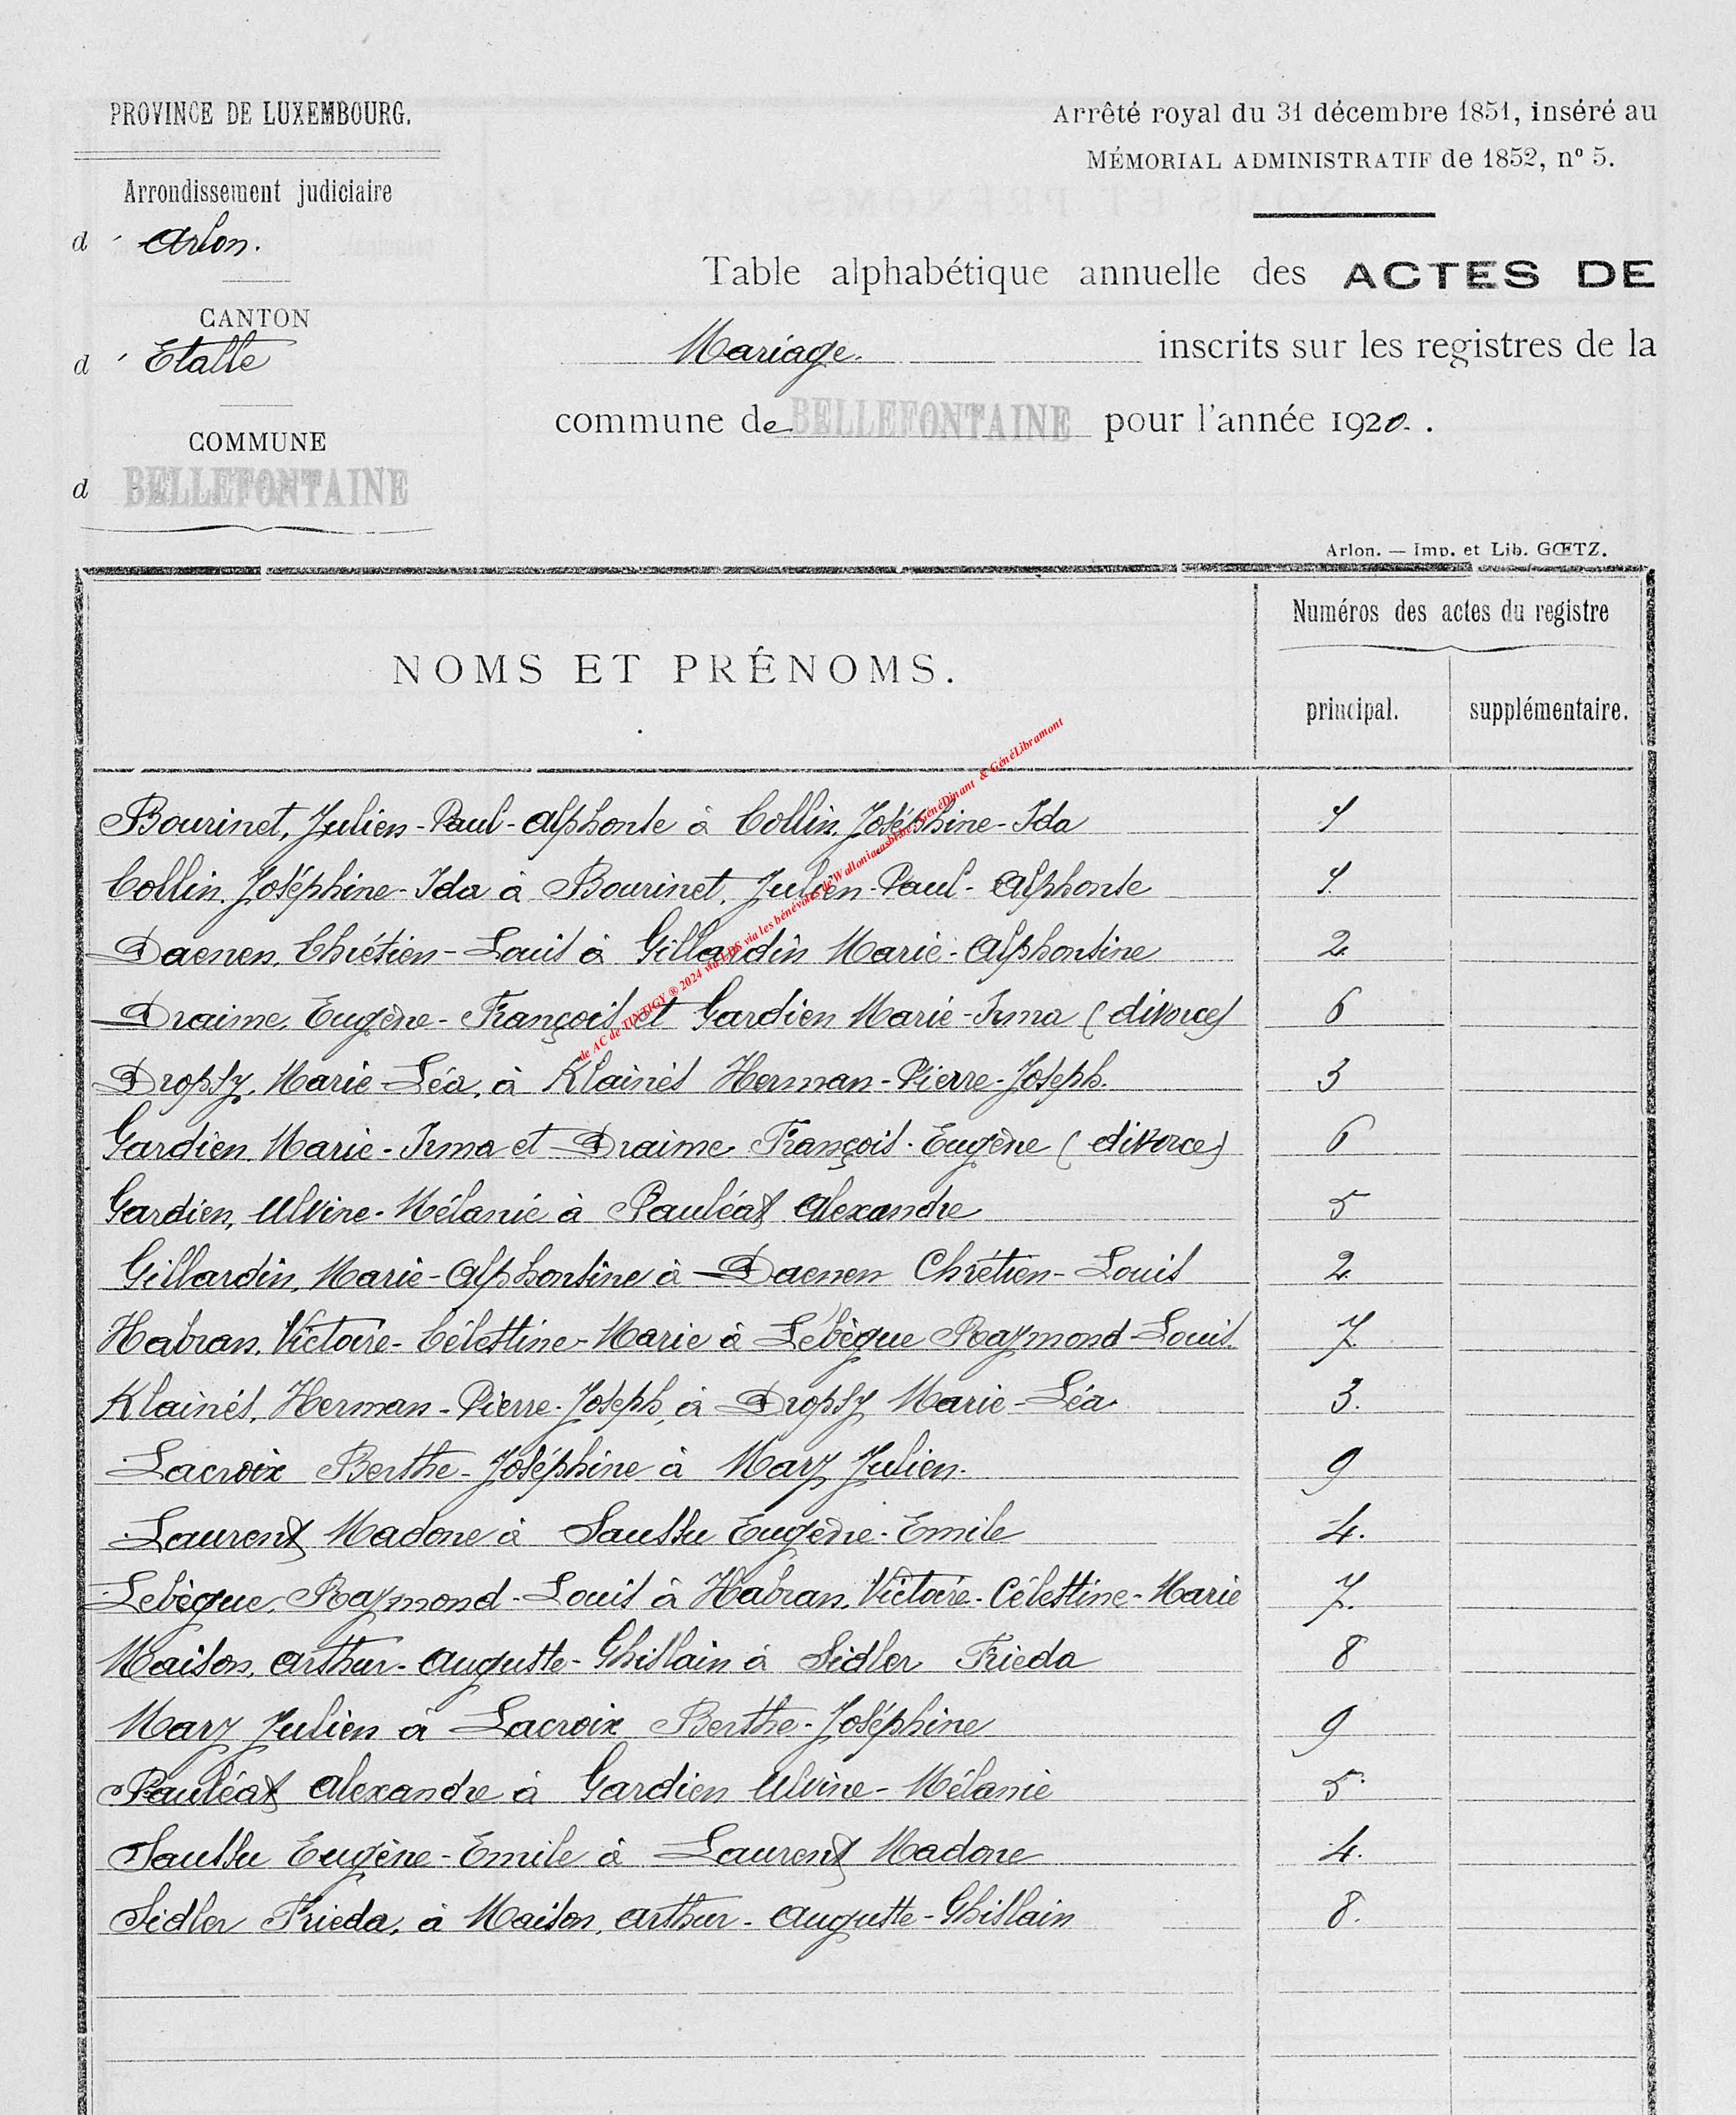 PROVINCE DE LUXEMBOURG.
Arrondissement judiciaire
d' Arlon.
CANTON
d' Etalle
COMMUNE
d BELLEFONTAINE
Arrêté royal du 31 décembre 1851, inséré au
MÉMORIAL ADMINISTRATIF de 1852, nº 5.
Table alphabétique annuelle des ACTES DE
Mariage. inscrits sur les registres de la
commune de BELLEFONTAINE pour l'année 1920. .
Arlon. — Imp. et Lib. GŒTZ.
NOMS ET PRÉNOMS.
Numéros des actes du registre
principal. supplémentaire.
Bourinet, Julien-Paul-Alphonse à Collin, Joséphine-Ida 1
Collin, Joséphine-Ida à Bourinet, Julien-Paul-Alphonse 1.
Daenen, Chrétien-Louis à Gillardin Marie-Alphonsine 2
Draime, Eugène-François et Gardien Marie-Irma (divorce) 6
Dropsy, Marie-Léa, à Klainés Herman-Pierre-Joseph. 3
Gardien, Marie-Irma et Draime François-Eugène (divorce) 6
Gardien, Ulvine-Mélanie à Pauléat Alexandre 5
Gillardin, Marie-Alphonsine à Daenen Chrétien-Louis 2
Habran, Victoire-Célestine-Marie à Lebègue Raymond-Louis. 7
Klainés, Herman-Pierre-Joseph, à Dropsy Marie-Léa 3.
Lacroix Berthe-Joséphine à Mary Julien. 9
Laurent Madone à Saussu Eugène-Emile 4.
Lebègue, Raymond-Louis à Habran, Victoire-Célestine-Marie 7.
Maison, Arthur-Auguste-Ghislain à Sidler Frieda 8
Mary Julien à Lacroix Berthe-Joséphine 9
Pauléat Alexandre à Gardien Ulvine-Mélanie 5
Saussu Eugène-Emile à Laurent Madone 4.
Sidler Frieda, à Maison, Arthur-Auguste-Ghislain 8.
de AC de TINTIGY ® 2024 via LDS via les bénévoles de Walloniaasbl.be, GénéDinant & GénéLibramont